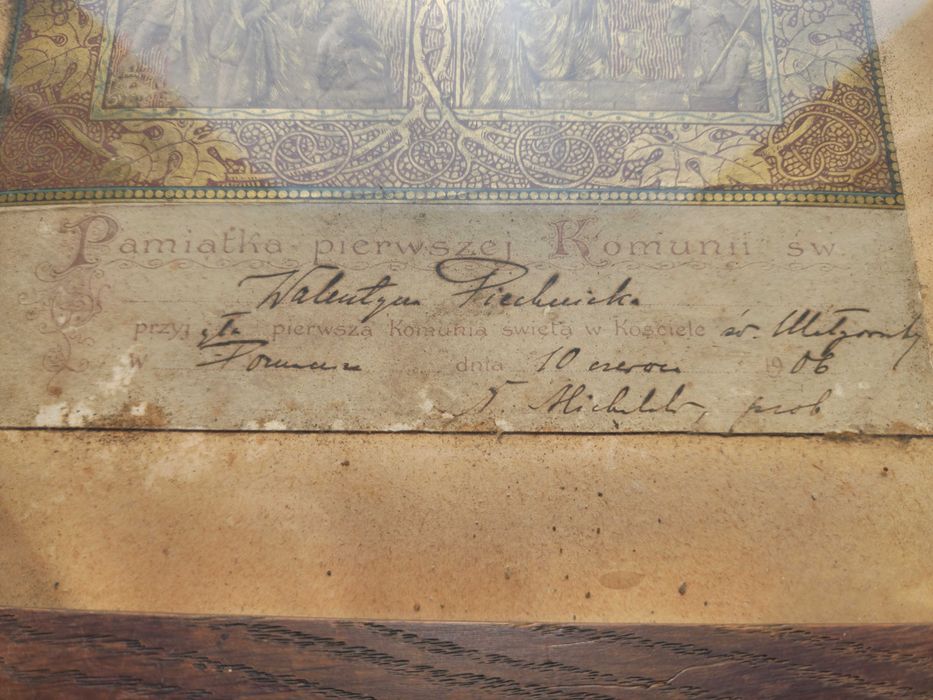 Pamiątka pierwszej Komunii św
Walentyna Piechnicka
przyjęła pierwszą Komunią świętą w Kościele św. Małgorzaty
w Poznaniu dnia 10 czerwca 1906
prob